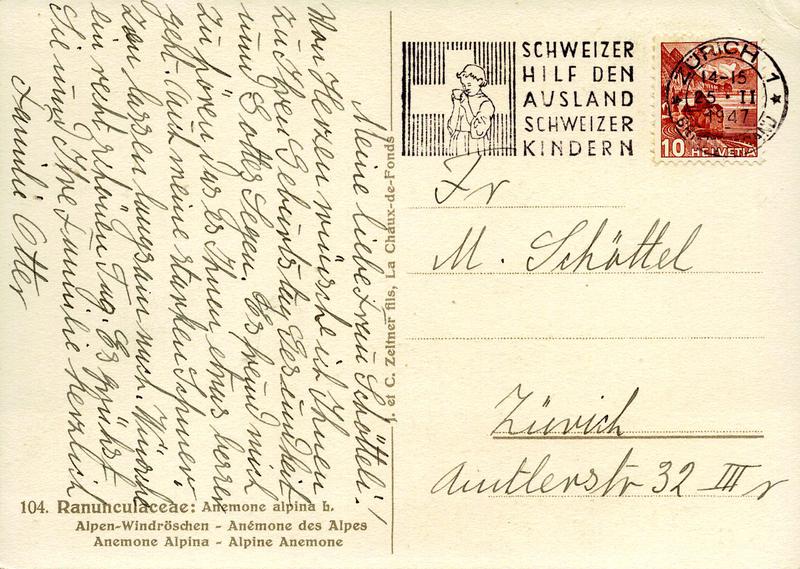 Meine liebe Frau Schötteli!
Von Herzen wünsche ich Ihnen
zu Ihren Geburtstag Gesundheit
und Gottes Segen. Es freud mich
zu hören das es Ihnen etwas besser
geht. Auch meine starken Schmer
zen lassen langsam nach. Wünsche
ein recht schönen Tag. Es grüsst
Sie und Ihre Familie herzlich
Familie Otter
104. Ranunculaceae: Anemone alpina L.
Alpen-Windröschen - Anémone des Alpes
Anemone Alpina - Alpine Anemone
J. et C. Zeltner fils, La Chaux-de-Fonds
SCHWEIZER
HILF DEN
AUSLAND
SCHWEIZER
KINDERN
ZÜRICH 1
14-15
25 II
1947
10 HELVETIA
Fr
M. Schöttel
Zürich
Amtlerstr 32 III r